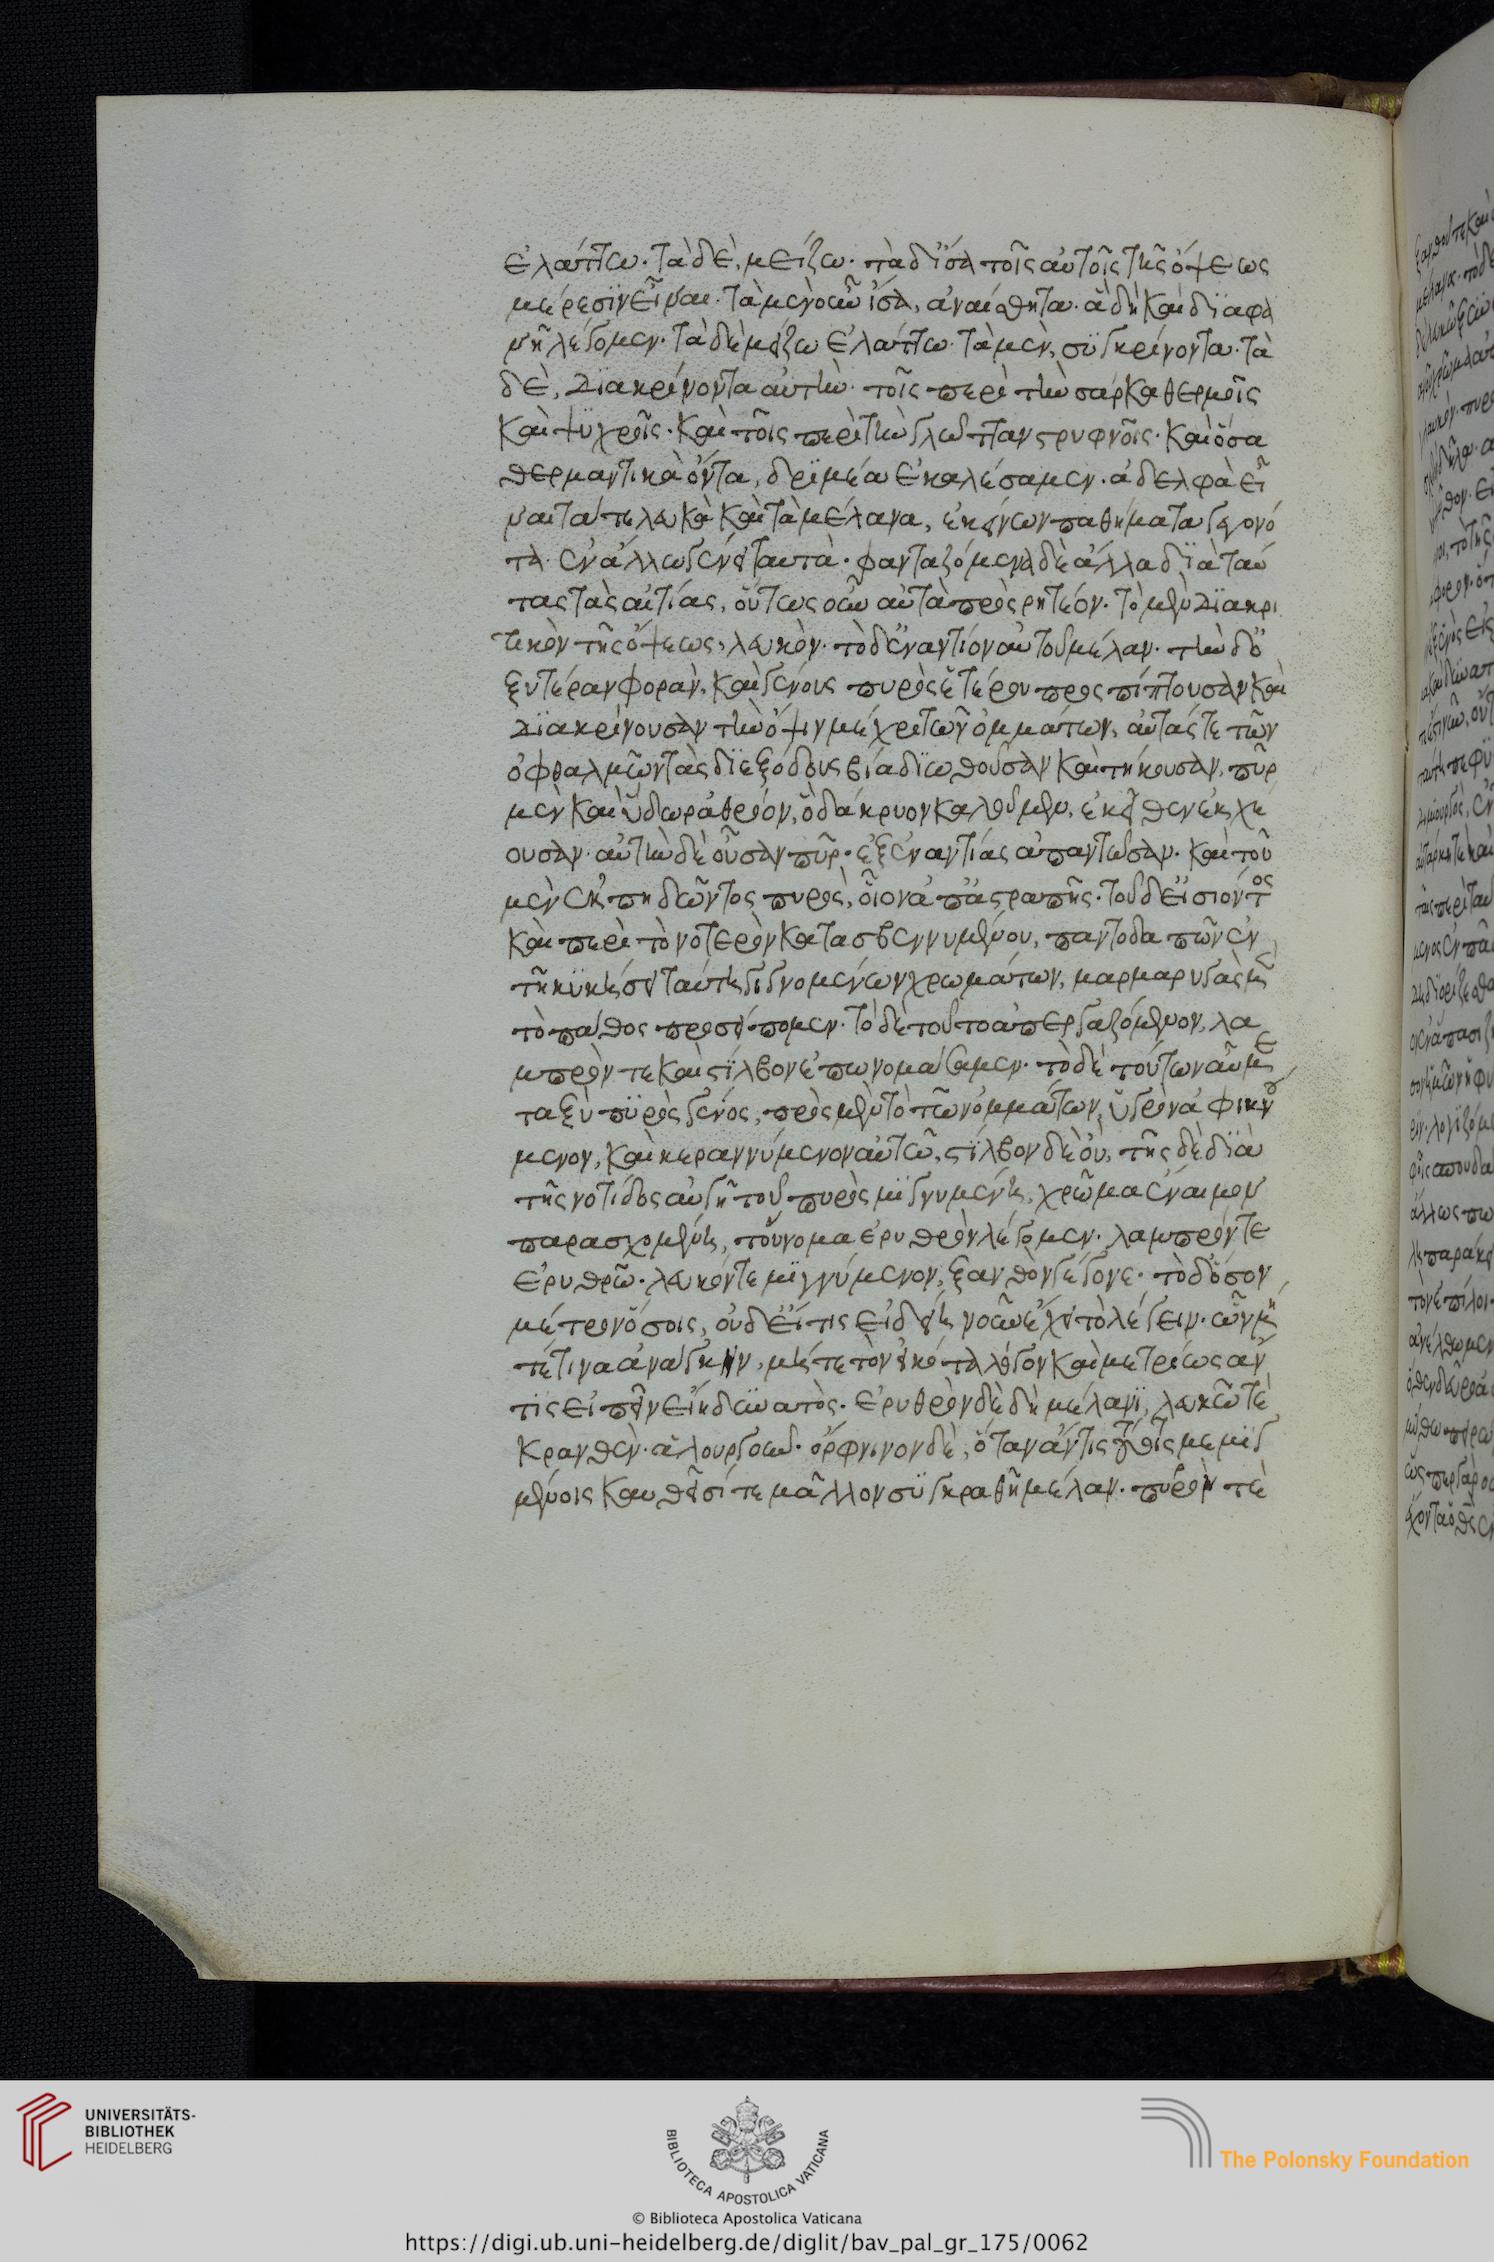 ἐλάττω· τὰ δὲ, μείζω· τὰ δ' ἴσα τοῖς αὐτοῖς τῆς ὄψεως
μέρεσϊν εἶναι· τὰ μὲν οὖν ἴσα, ἀναίσθητα· ἃ δὴ καὶ δϊαφα
νῆ λέγομεν· τὰ δὲ μείζω ἐλάττω· τὰ μὲν, συγκρίνοντα· τὰ
δὲ, δϊακρίνοντα αὐτὴν· τοῖς περὶ τὴν σάρκα θερμοῖς
καὶ ψυχροῖς· καὶ τοῖς περὶ τὴν γλώτταν στρυφνοῖς· καὶ ὅσα
θερμαντικὰ ὄντα, δριμέα ἐκαλέσαμεν· ἀδελφὰ εἶ
ναι τά τε λευκὰ καὶ τὰ μέλανα, ἐκείνων παθήματα γεγονό
τα· ἐν ἄλλω γένει ταυτὰ· φανταζόμενα δὲ ἄλλα δϊὰ ταύ
τας τὰς αἰτίας, οὕτως οὖν αὐτὰ προσρητέον· τὸ μὲν δϊακρι
τικὸν τῆς ὄψεως, λευκὸν· τὸ δ' ἐναντίον αὐτοῦ μέλαν· τὴν δ' ὀ
ξυτέραν φορὰν, καὶ γένους πυρὸς ἑτέρου προσπίπτουσαν καὶ
δϊακρίνουσαν τὴν ὄψιν μέχρι τῶν ὀμμάτων, αὐτάς τε τῶν
ὀφθαλμῶν τὰς διεξόδους βία δϊωθοῦσαν καὶ τήκουσαν, πῦρ
μὲν καὶ ὕδωρ ἀθρόον, ὃ δάκρυον καλοῦμεν, ἐκεῖθεν ἐκχέ
ουσαν· αὐτὴν δὲ οὖσαν πῦρ· ἐξ ἐναντίας ἀπαντῶσαν· καὶ τοῦ
μὲν ἐκπηδῶντος πυρὸς, οἷον ἀπ' ἀστραπῆς· τοῦ δ' εἰσιόντος
καὶ περὶ τὸ νοτερὸν κατασβεννυμένου, παντοδαπῶν ἐν
τῆ κϋκήσει ταύτη γιγνομένων χρωμάτων, μαρμαρυγὰς μὲν
τὸ πάθος προσείπομεν· τὸ δὲ τοῦτο ἀπεργαζόμενον, λα
μπρόν τε καὶ στίλβον ἐπωνομάσαμεν· τὸ δὲ τούτων αὖ με
ταξὺ πϋρὸς γένος, πρὸς μὲν τὸ τῶν ὀμμάτων, ὑγρὸν ἀφικνού
μενον, καὶ κεραννύμενον αὐτῶ, στίλβον δὲ οὐ, τῆς δὲ δϊὰ
τῆς νοτίδος αὐγῆ τοῦ πυρὸς μϊγνυμένη, χρῶμα ἔναιμον
παρασχομένη, τοὔνομα ἐρυθρὸν λέγομεν· λαμπρόν τε
ἐρυθρῶ· λευκόν τε μϊγνύμενον, ξανθὸν γέγονε· τὸ δ' ὅσον
μέτρον ὅσοις, οὐδ' εἴ τις εἰδείη νοῦν ἔχει τὸ λέγειν· ὧν μή
τέ τινα ἀνάγκην, μήτε τὸν εἰκότα λόγον καὶ μετρίως ἄν
τις εἰπεῖν εἴη δϋνατὸς· ἐρυθρὸν δὲ δὴ μέλανϊ, λευκῶ τε
κραθὲν· ἁλουργοῦν· ὄρφνινον δὲ, ὅταν ἄν τις τούτοις μεμϊγ
μένοις καυθεῖσί τε μᾶλλον συγκραθῆ μέλαν· πυρρὸν τὲ
UNIVERSITÄTS-
BIBLIOTHEK
HEIDELBERG
BIBLIOTECA APOSTOLICA VATICANA
The Polonsky Foundation
© Biblioteca Apostolica Vaticana
https://digi.ub.uni-heidelberg.de/diglit/bav_pal_gr_175/0062